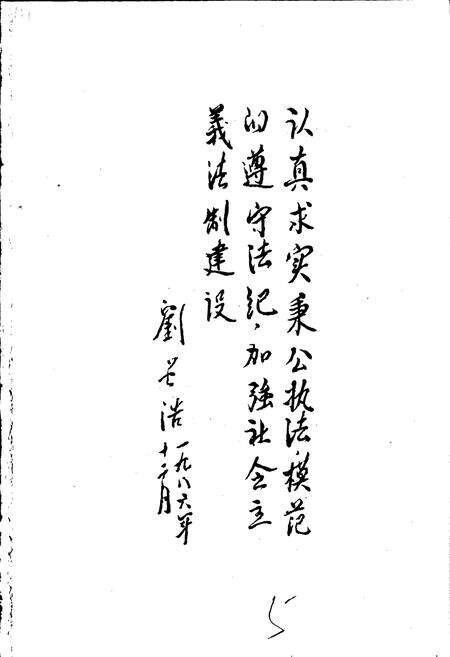 认真求实秉公执法,模范
的遵守法纪,加强社会主
義法制建设
劉 浩
一九八六年
十二月
5